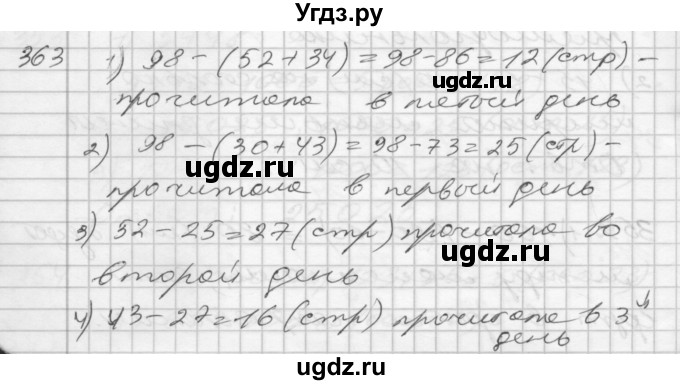 Угдз.ру
363 1) 98 - (52+34) = 98-86 = 12 (стр) -
ugdz.ru
прочитала в пятый день
ugdz.ru
2) 98 - (30+43) = 98-73 = 25 (стр) -
ugdz.ru
прочитала в первый день
3) 52 - 25 = 27 (стр) прочитала во
ugdz.ru
второй день
ugdz.ru
4) 43 - 27 = 16 (стр) прочитала в 3й
день
ugdz.ru